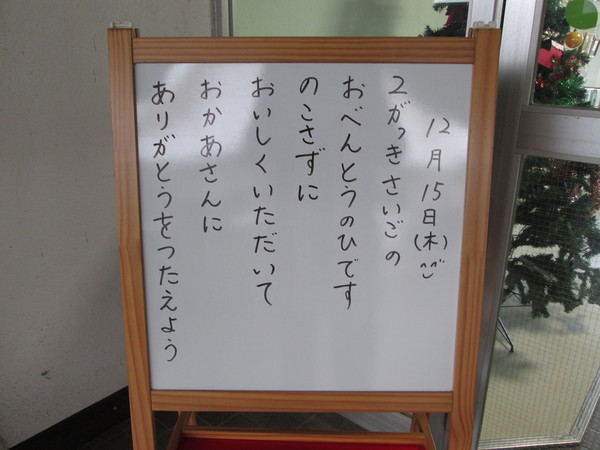 12月15日(木)
2がっきさいごの
おべんとうのひです
のこさずに
おいしくいただいて
おかあさんに
ありがとうをつたえよう